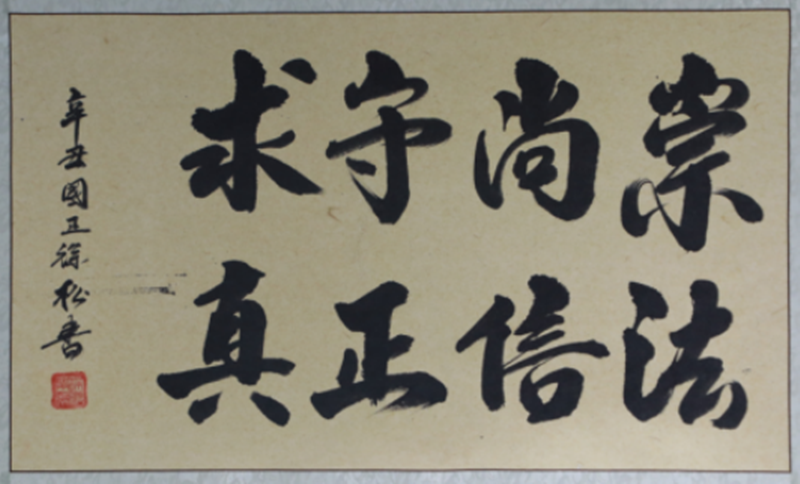 崇法
尚信
守正
求真
辛丑國正徐松書